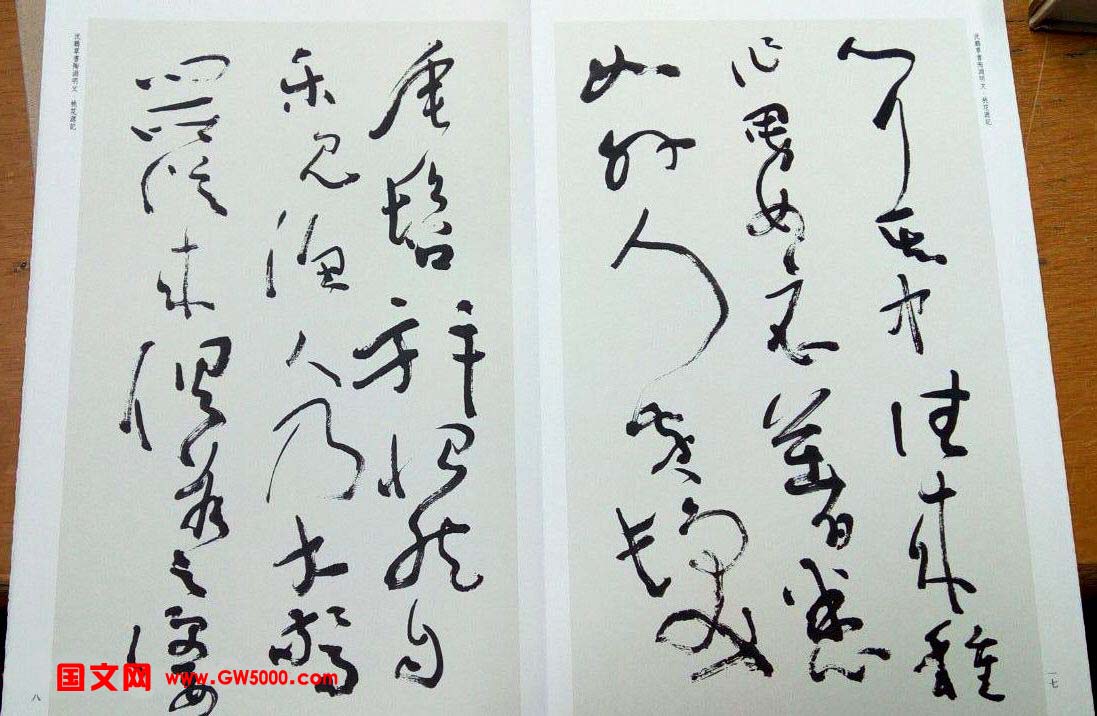 沈鵬草書陶淵明文·桃花源記
聞其中往來種
作男女衣著悉
如外人黃髮
一七
垂髫并怡然自
樂見漁人乃大驚
問所從來俱答之便要
沈鵬草書陶淵明文·桃花源記
八
国文网 www.GW5000.com